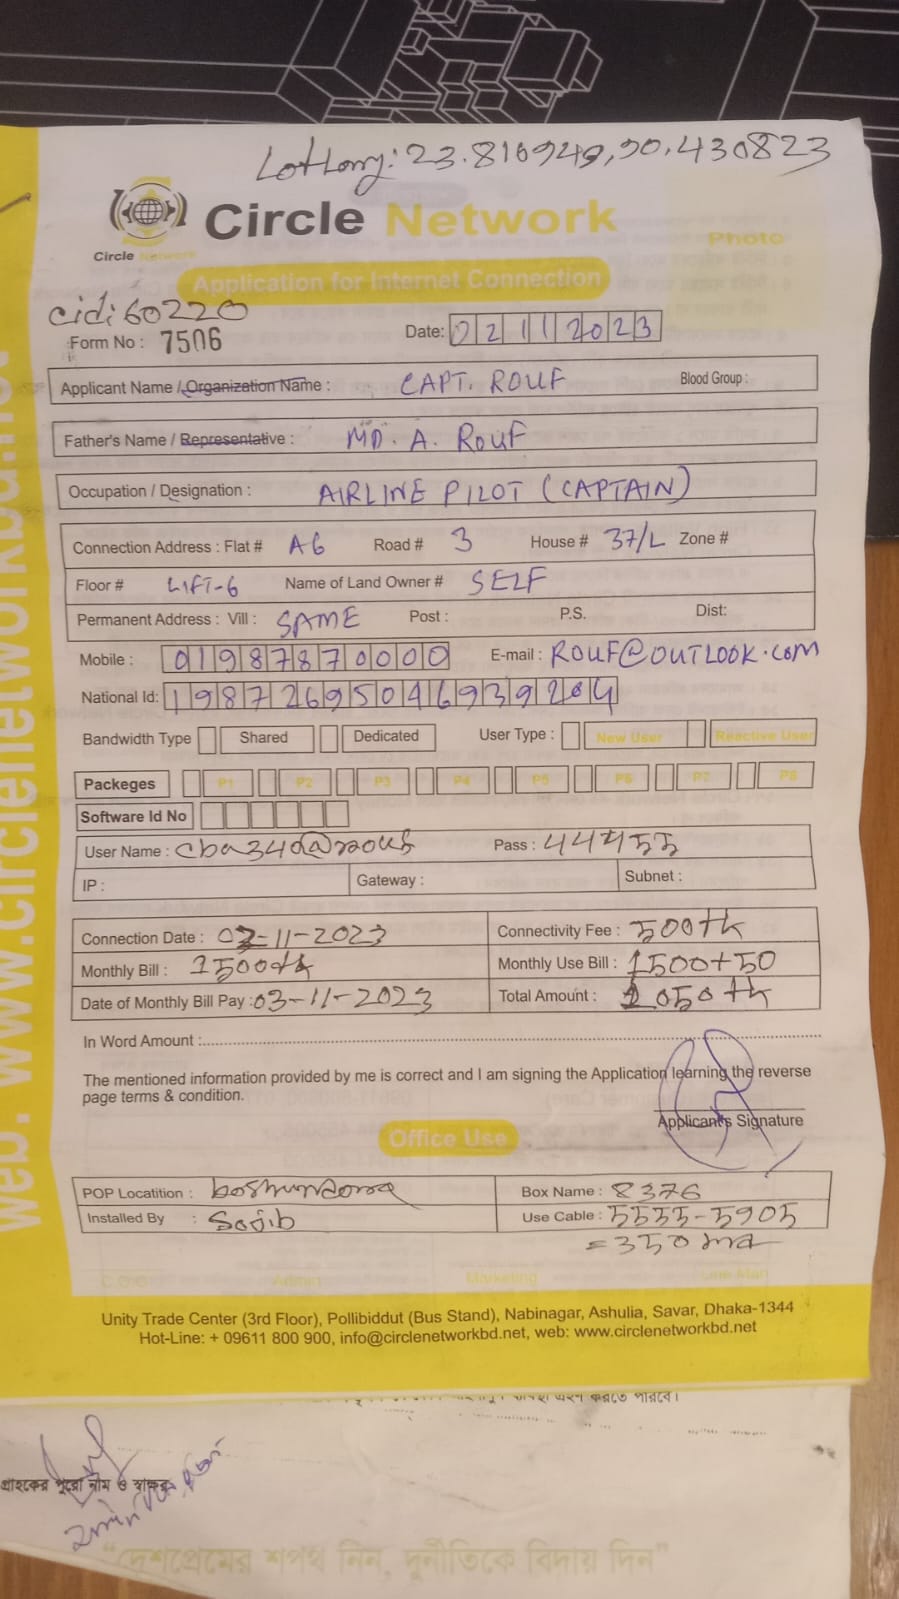 Lottony: 23.816949, 90.430823
Circle Network
Photo
Circle Network
Application for Internet Connection
cid: 60220
Form No : 7506
Date: 02112023
Applicant Name / Organization Name : CAPT. ROUF Blood Group :
Father's Name / Representative : MD. A. ROUF
Occupation / Designation : AIRLINE PILOT (CAPTAIN)
Connection Address : Flat # A6 Road # 3 House # 37/L Zone #
Floor # LIFT-6 Name of Land Owner # SELF
Permanent Address : Vill : SAME Post : P.S. Dist:
Mobile : 01987870000 E-mail : ROUF@OUTLOOK.COM
National Id: 19872695046939204
Bandwidth Type Shared Dedicated User Type : New User Reective User
Packeges P1 P2 P3 P4 P5 P6 P7 P8
Software Id No
User Name : cba340@rouf Pass : 444455
IP : Gateway : Subnet :
Connection Date : 03-11-2023 Connectivity Fee : 500tk
Monthly Bill : 1500tk Monthly Use Bill : 1500+50
Date of Monthly Bill Pay : 03-11-2023 Total Amount : 2050 tk
In Word Amount :
The mentioned information provided by me is correct and I am signing the Application learning the reverse
page terms & condition.
Applicant's Signature
Office Use
POP Locatition : boshundora Box Name : 8376
Installed By : Sojib Use Cable : 5555-5905
=350 ma
C.O.O Admin Marketing Line Man
Unity Trade Center (3rd Floor), Pollibiddut (Bus Stand), Nabinagar, Ashulia, Savar, Dhaka-1344
Hot-Line: + 09611 800 900, info@circlenetworkbd.net, web: www.circlenetworkbd.net
web: www.circlenetworkbd.net
করতে পারবে।
গ্রাহকের পুরো নাম ও স্বাক্ষর
"দেশপ্রেমের শপথ নিন, দুর্নীতিকে বিদায় দিন"